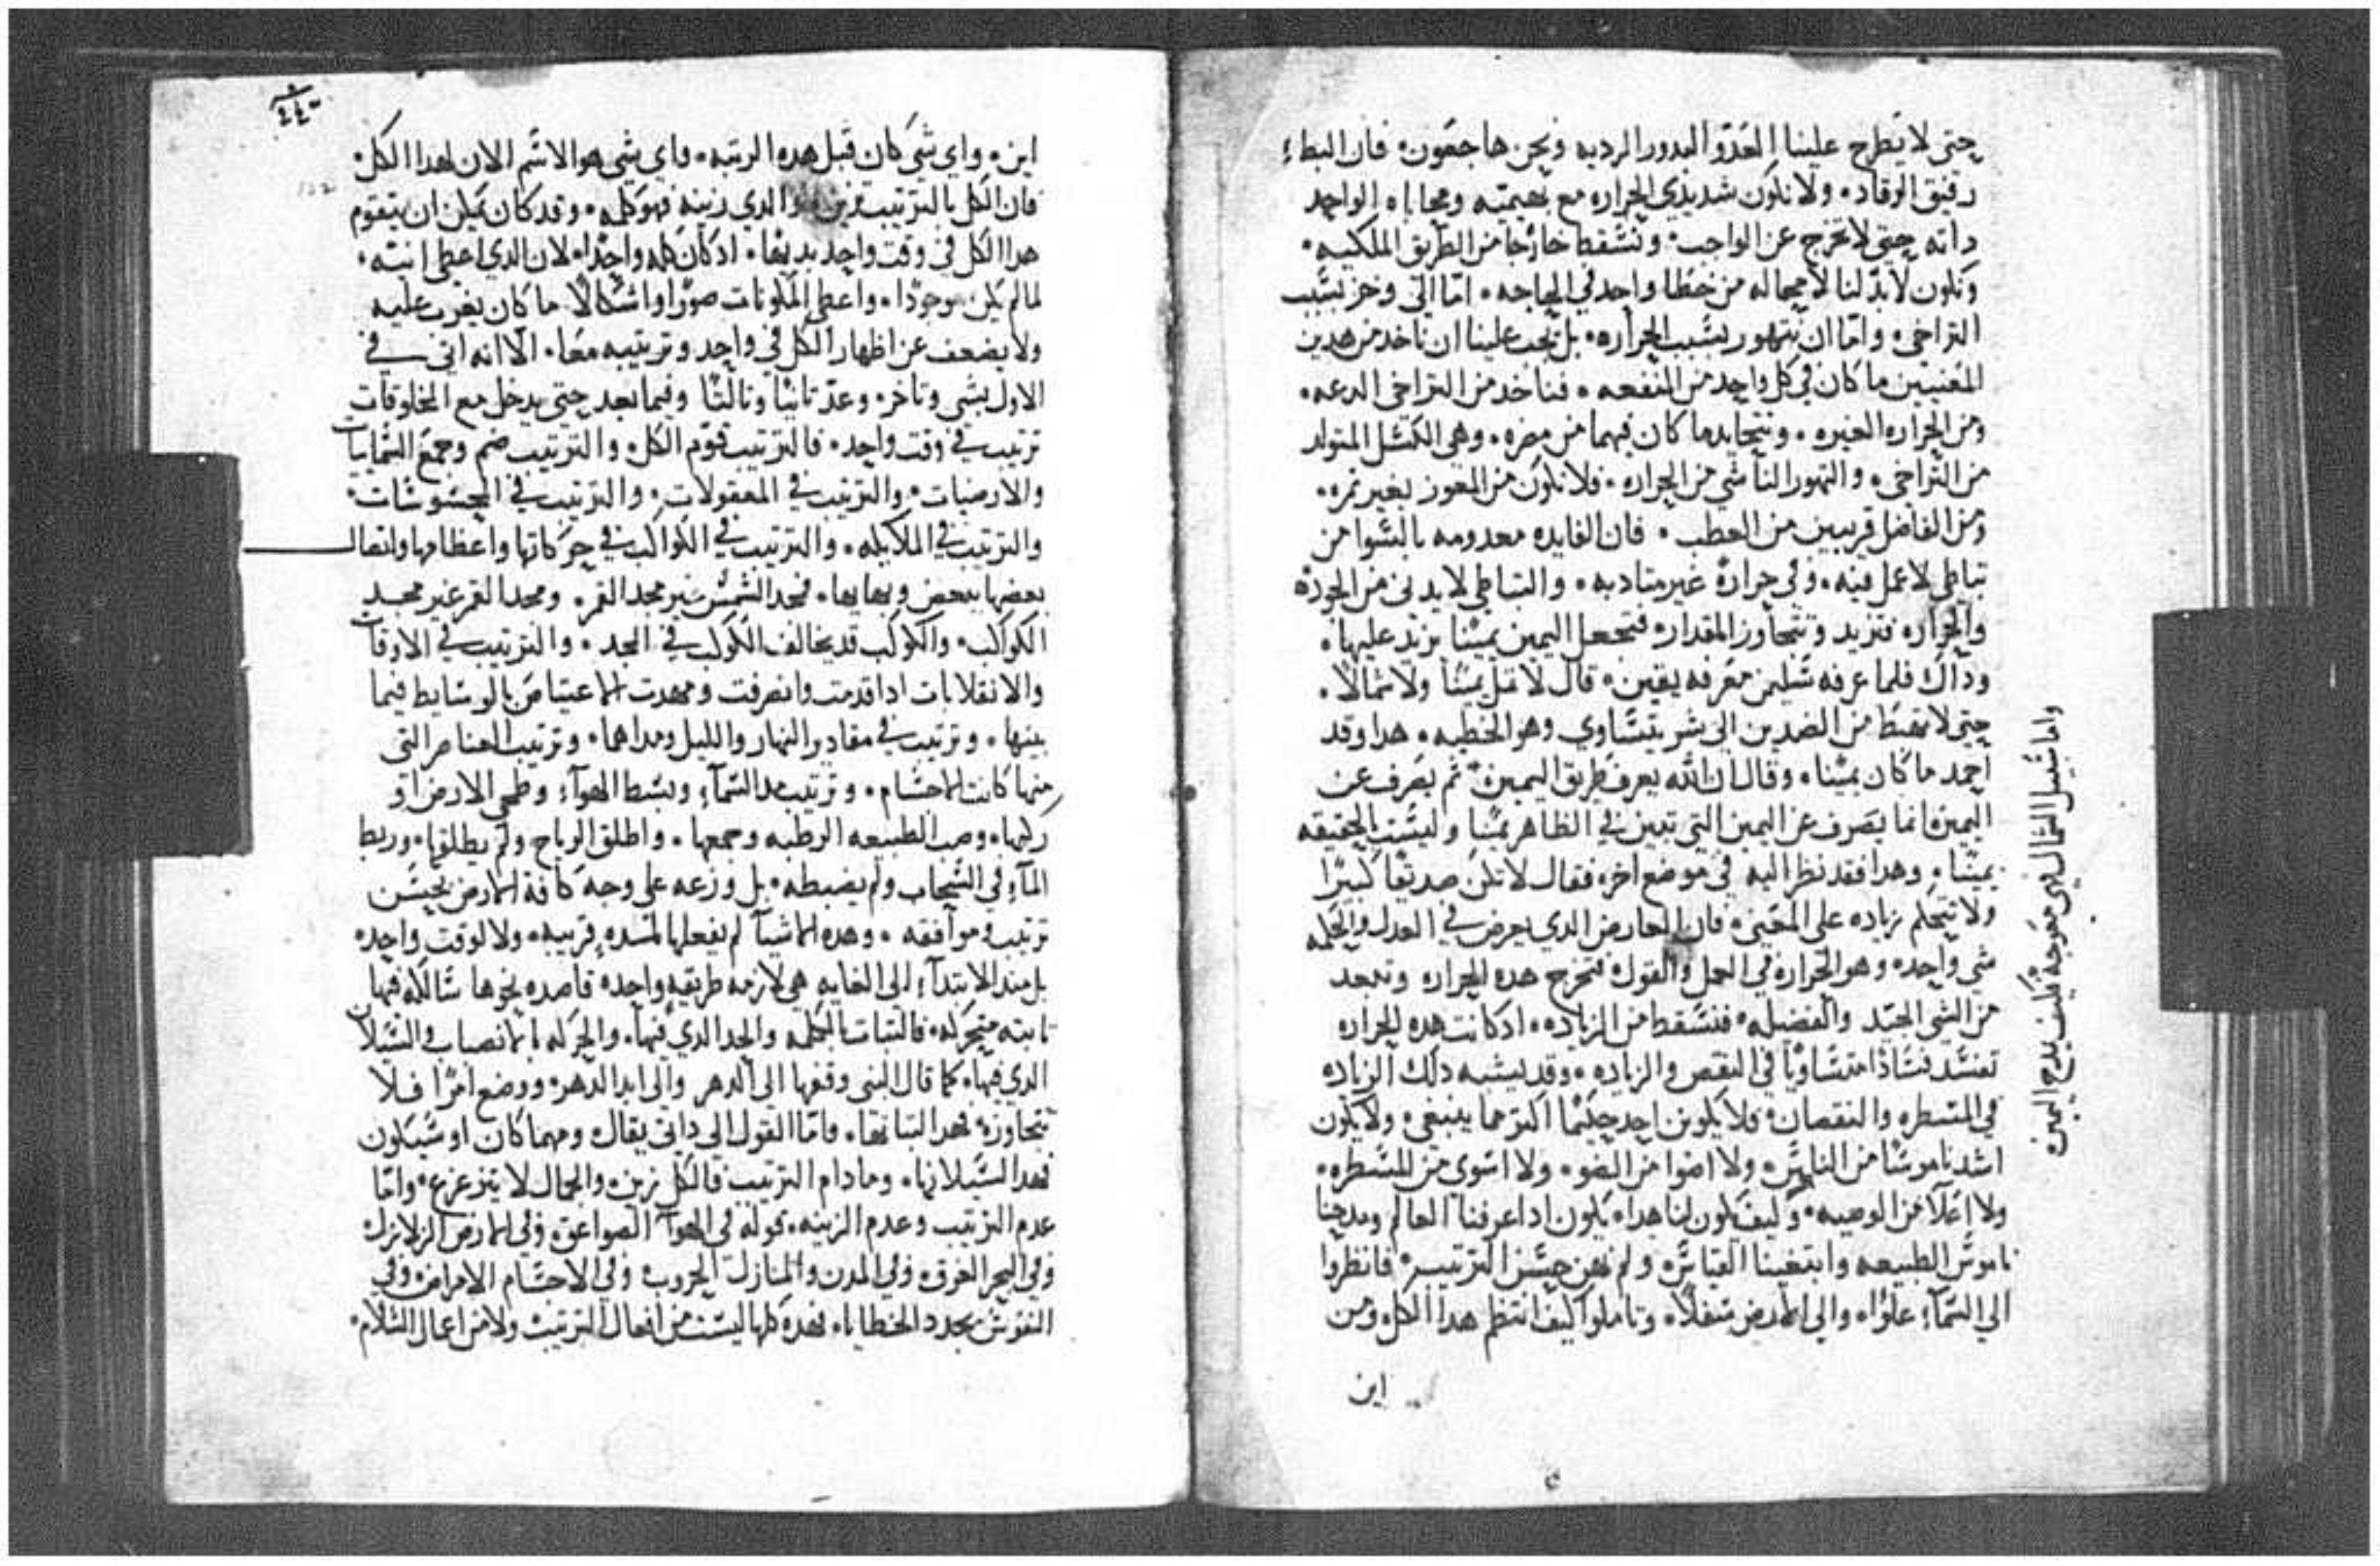 حتى لا يطرح علينا العدو البدور الرديه ونحن هاجعون٠ فان البطاء
رفيق الوقاد٠ ولا نكون شديدي الحراره مع بهيميته ومحاباه الواحد
داته حتى لا نخرج عن الواجب٠ ونسقط خارجا من الطريق الملكيه٠
ونكون لا بد لنا لا محاله من خطا واحد في الحاجه٠ امّا الى وخز بسبب
التراخي٠ وامّا ان نتهور بسبب الحراره٠ بل يجب علينا ان ناخد من هدين
المعنيين ما كان في كل واحد من المنفعه٠ فناخد من التراخي الدعه٠
ومن الحراره الغيره٠ ونتحايد ما كان فيهما من مضره٠ وهي الكسل المتولد
من التراخي٠ والتهور الناشي من الحراره٠ فلا نكون من المعوز بغير تمره٠
ومن الفاضل قريبين من العطب٠ فان الفايده معدومه بالسوا من
تباطي لا عمل فيه٠ وفي حرارة غير متادبه٠ والتباطي لا يدنى من الجوده
والحراره فتزيد وتتجاوز المقدار٠ فتجعل اليمين يمينا تزيد عليها٠
وداك فلما عرفه سليمن معرفه يقين٠ قال لا تمل يمينا ولا شمالا٠
حتى لا تسقط من الضدين الى شر يتساوي وهو الخطيه٠ هدا وقد
احمد ما كان يمينا٠ وقال ان الله يعرف طريق اليمين٠ ثم يصرف عن
اليمين٠ انما يصرف عن اليمين التي تبين في الظاهر يمينا وليست بالحقيقه
يمينا٠ وهدا فقد نظر اليه في موضع اخر٠ فقال لا تكن صديقا كبيرا
ولا تتحكم زياده على المعنى٠ فان العارض الدي يعرض في العدل والحكمه
شي واحد٠ وهو الحراره في العمل والقول٠ فتخرج هده الحراره وتبعد
من الشي الجيد والفضيله٠ فتسقط من الزياده٠ اد كانت هده الحراره
تفسد فسادا متساويا في النقص والزياده٠ وقد يشبه دلك الزياده
في المسطره والنقصان٠ فلا يكونن احد حكيما اكتر مما ينبغي٠ ولا يكون
اشد ناموسا من الناموس٠ ولا اضوا من الضو٠ ولا اسوى من المسطره٠
ولا اعلا من الوصيه٠ وكيف يكون لنا هدا٠ يكون ادا عرفنا العالم ومدحنا
ناموس الطبيعه وابتغينا القياس٠ ولم نهن حسن الترتيب٠ فانظروا
الي السماء علوا٠ والى الارض سفلا٠ وتاملوا كيف انتظم هدا الكل٠ ومن
اين
واما سبيل الشمال فهي معوجة فكيف يدم اليمين٠
اين٠ واي شي كان قبل هده الرتبه٠ واي شي هو الاسم الان لهدا الكل٠
فان الكل بالترتيب والدي زينه فهو كله٠ وقد كان يمكن ان يتقوم
هدا الكل في وقت واحد بديها٠ اد كان كله واحدا٠ لان الدي اعطى انيته٠
لما لم يكن موجودا٠ واعطى المكونات صورا واشكالا ما كان يغرب عليه
ولا يضعف عن اظهار الكل في واحد وترتيبه معا٠ الا انه اتى في
الاول بشي وتاخر٠ وعدّ تانيا وتالتا وفيما بعد حتى يدخل مع المخلوقات
ترتيب في وقت واحد٠ فالترتيب قوم الكل٠ والترتيب ضم وجمع السمايات
والارضيات٠ والترتيب في المعقولات٠ والترتيب في المحسوسات٠
والترتيب في الملايكه٠ والترتيب في الكواكب في حركاتها واعظامها واتصال
بعضها ببعض وبهايها٠ فمجد الشمس غير مجد القمر٠ ومجد القمر غير مجد
الكواكب٠ والكوكب قد يخالف الكوكب في المجد٠ والترتيب في الاوقات
والانقلابات ادا قدمت وانصرفت ومهدت الاعتياص بالوسايط فيما
بينها٠ وترتيب في مقادير النهار والليل ومداهما٠ وترتيب العناصر التي
منها كانت الاجسام٠ وترتيب مد السماء وبسط الهواء وطحى الارض او
ركبها٠ وصب الطبيعه الرطبه وجمعها٠ واطلق الرياح ولم يطلقها٠ وربط
الماء في السحاب ولم يضبطه٠ بل وزعه على وجه كافة الارض بحسن
ترتيب وموافقه٠ وهده الاشيا لم يفعلها لمده قريبه٠ ولا لوقت واحد٠
بل مند الابتداء الى الغايه هي لازمه طريقه واحده قاصده نحوها سالكه فيها
تابته متحركه٠ فالتبات بالحكمه والحد الدي فيها٠ والحركه بالانصباب والسيلان
الدي فيها٠ كما قال النبى وقفها الى الدهر والى ابد الدهر٠ ووضع امرا فلا
تتجاوزه٠ فهدا لتباتها٠ فامّا القول الي داني يقال٠ ومهما كان او سيكون
فهدا السيلانها٠ وما دام الترتيب فالكل زين٠ والجمال لا يتزعزع٠ وامّا
عدم الترتيب وعدم الزينه٠ في الهوآ الصواعق٠ وفي الارض الزلازل٠
وفي البحر الغرق٠ وفي المدن والمنازل الحروب٠ وفي الاجسام الامراض٠ وفي
النفوس تجدد الخطايا٠ فهده كلها ليست من افعال الترتيب ولا من اعمال السلام٠